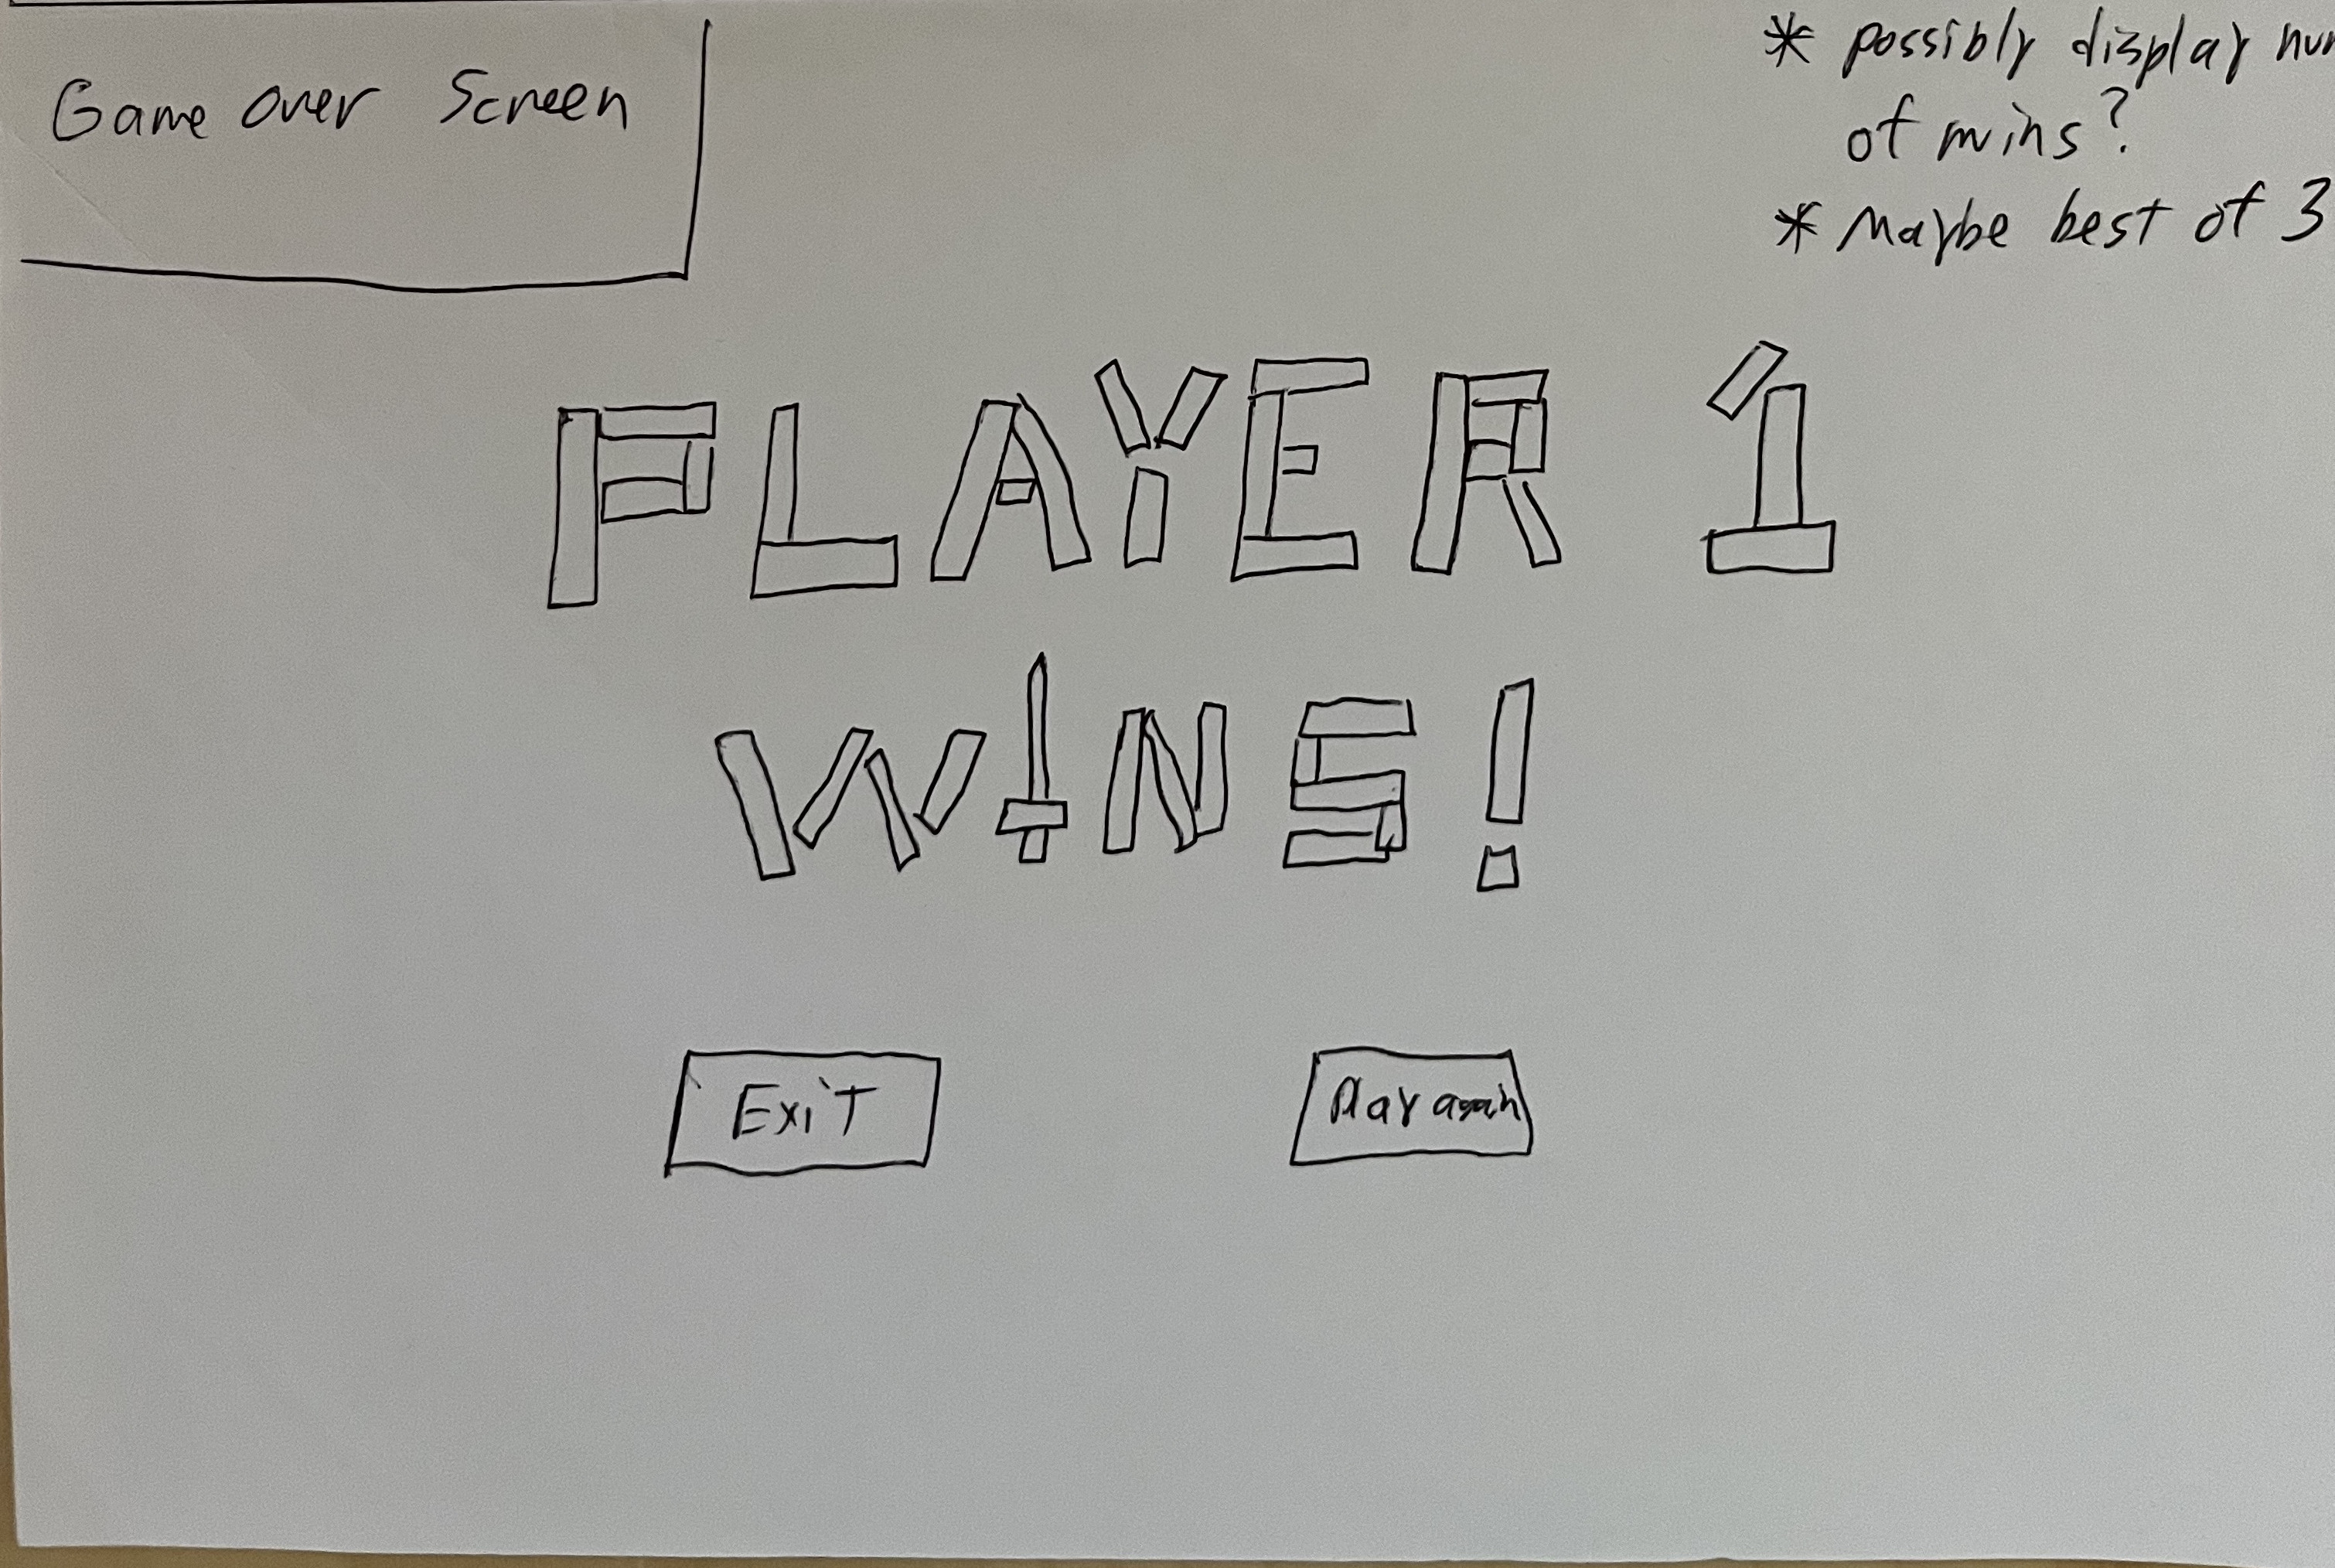 Game over Screen
* possibly display
of wins?
* Maybe best of 3
PLAYER 1
WINS!
Exit
Play again